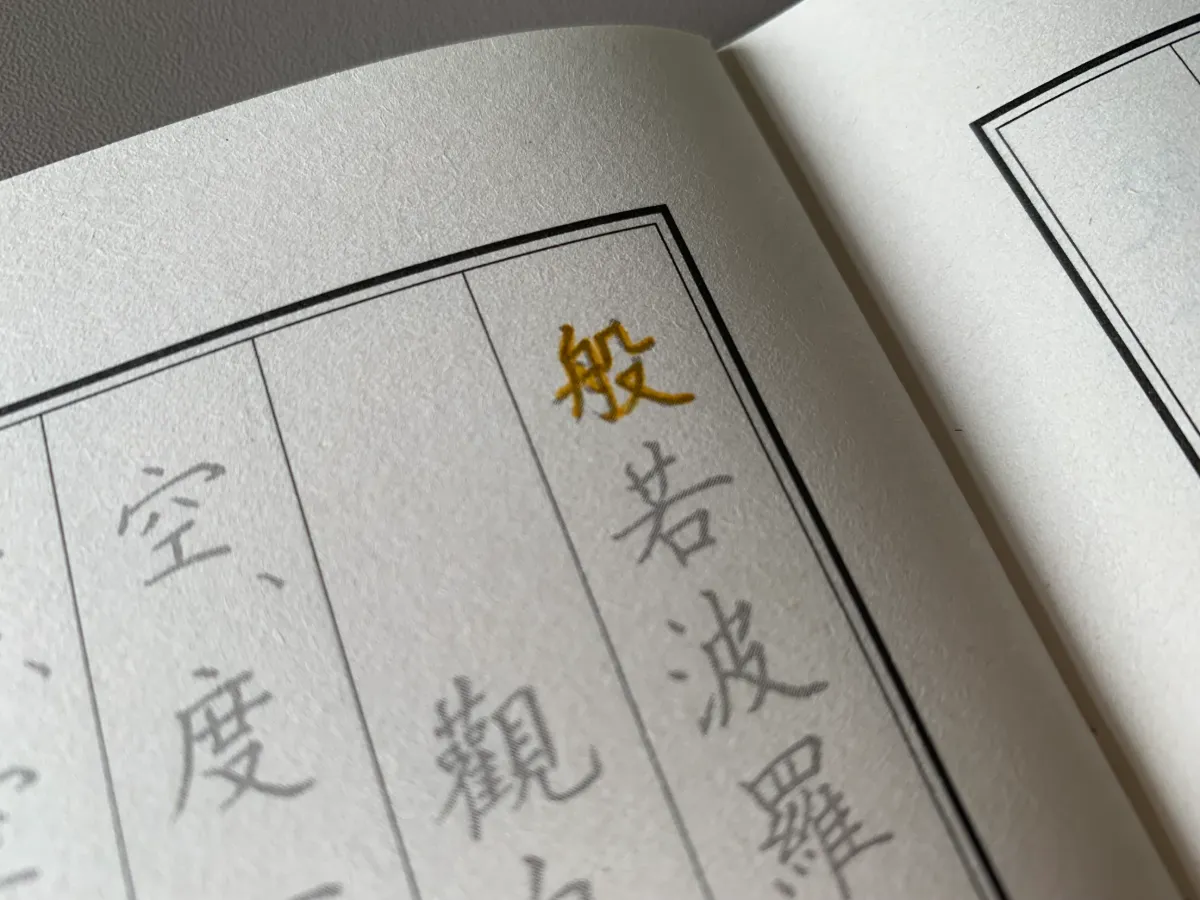 般若波羅
觀
空、度